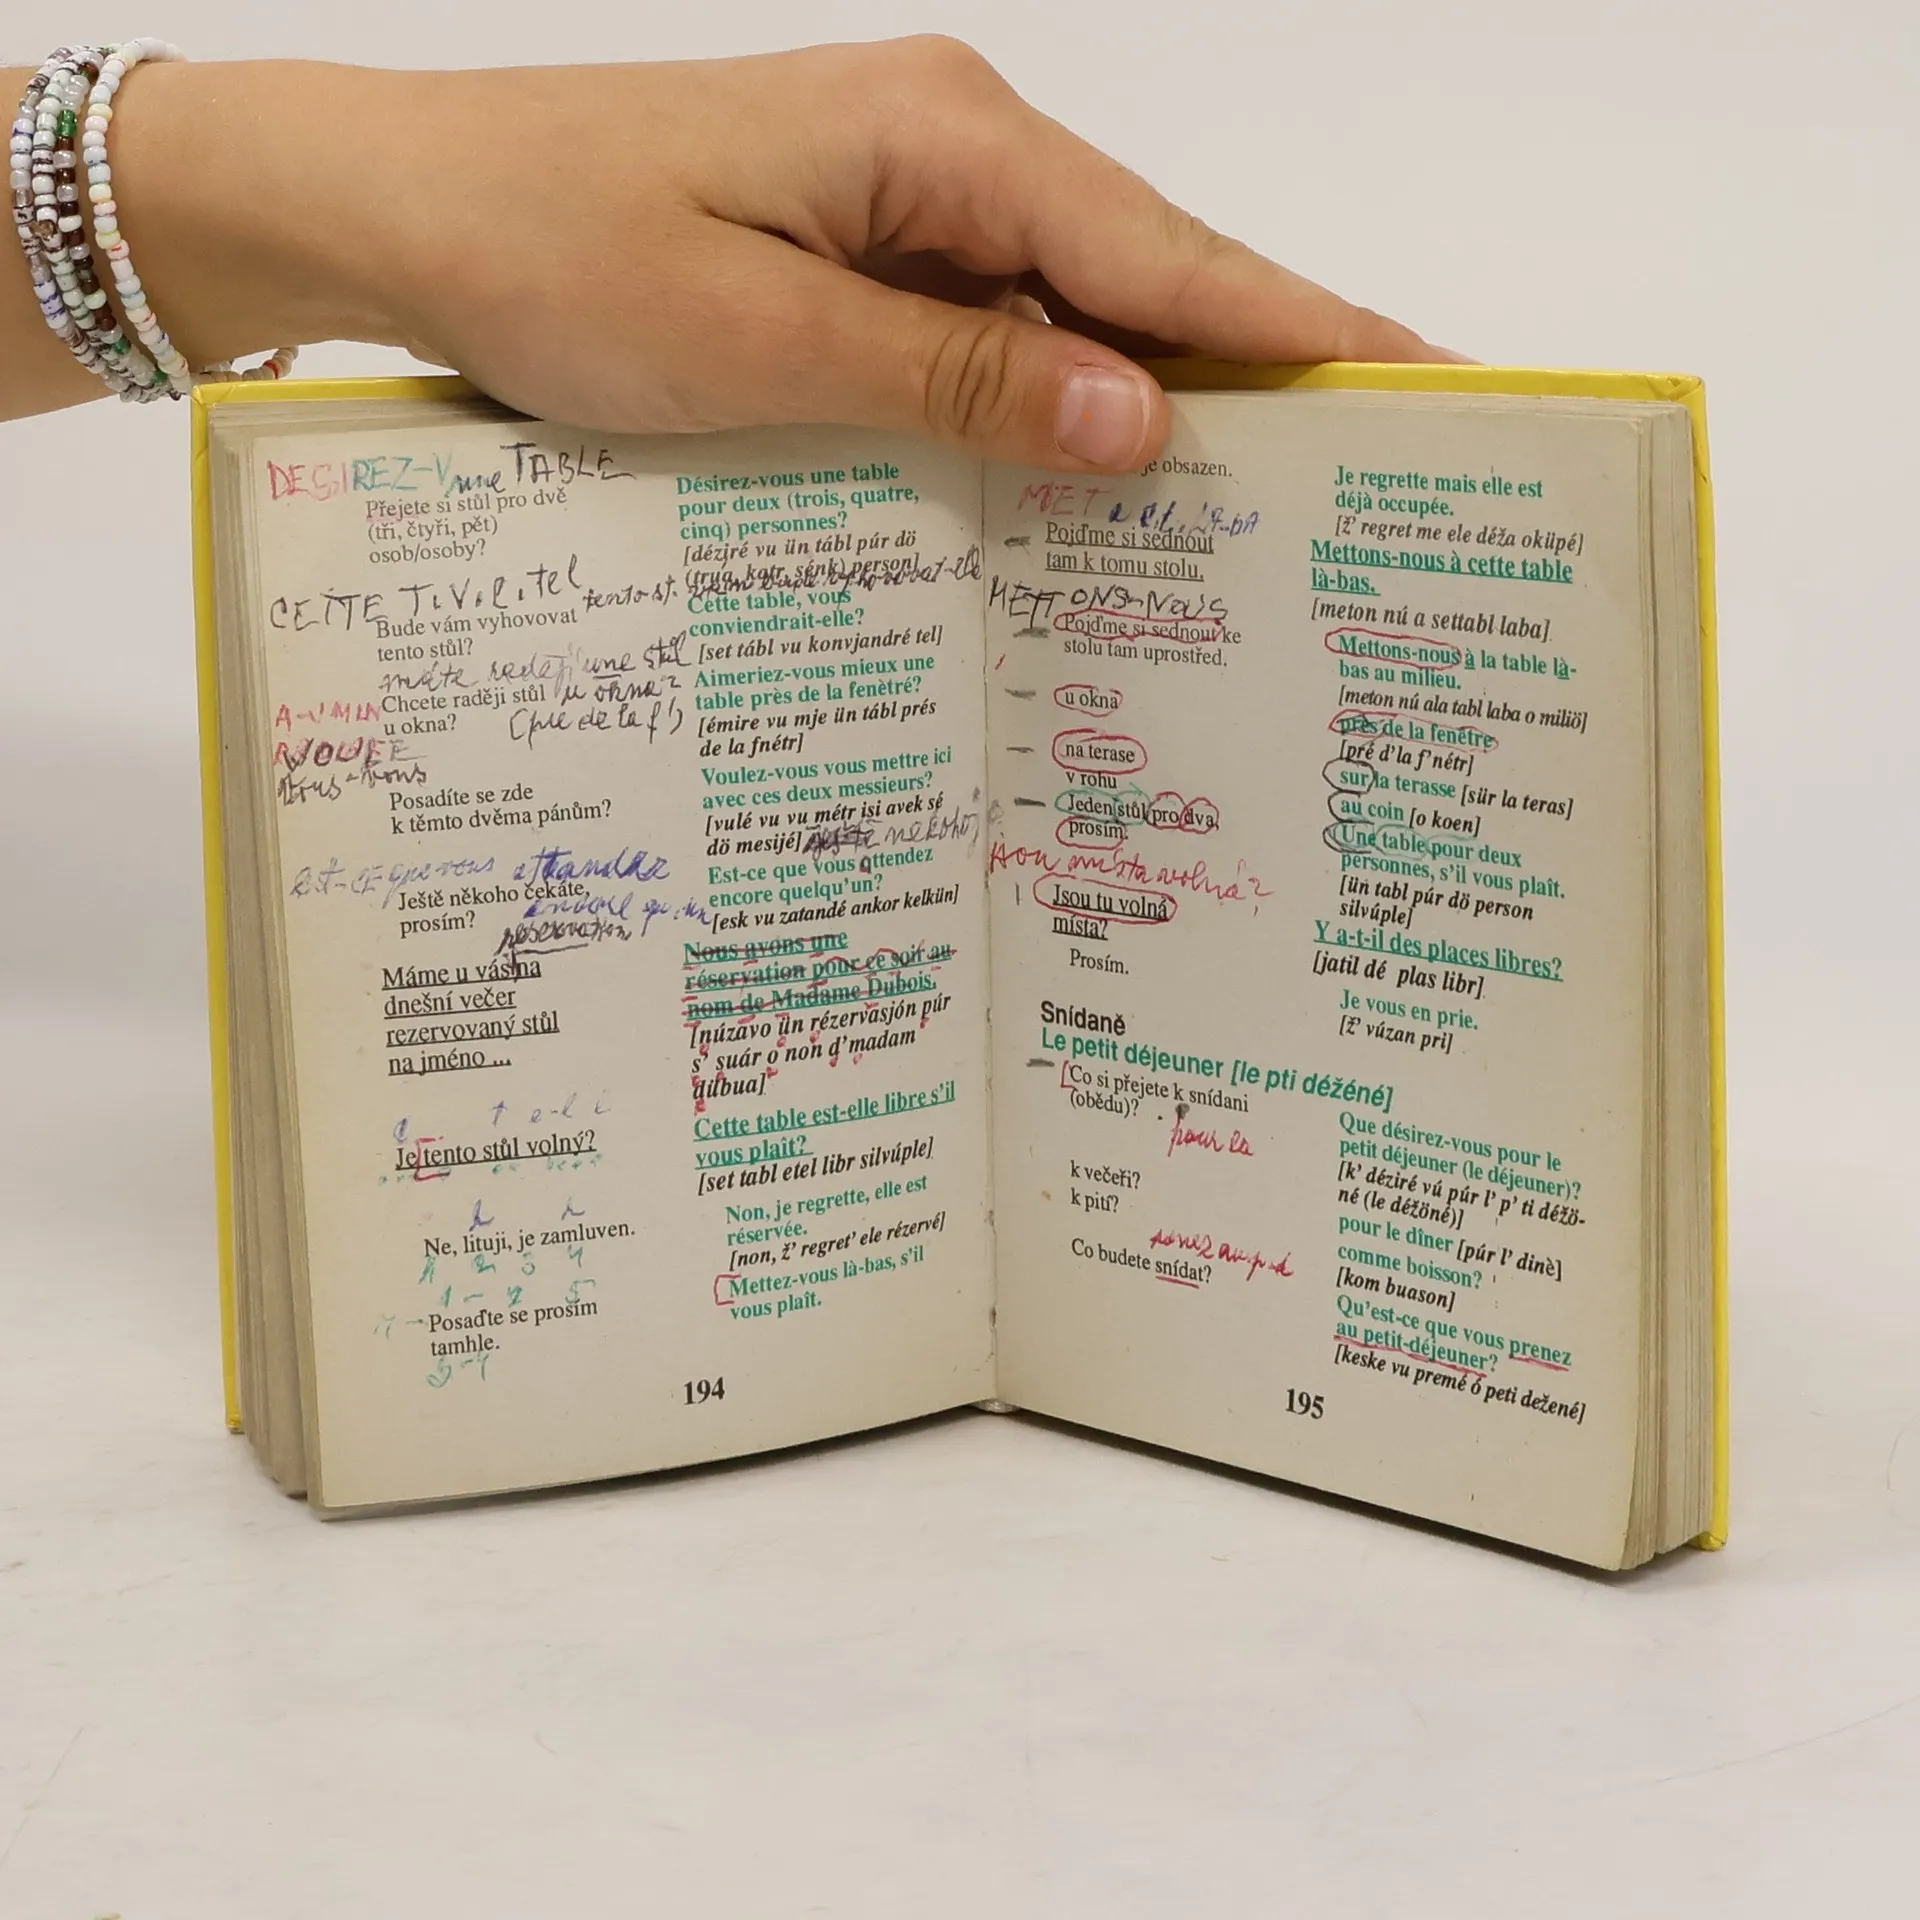 DESIREZ-V une TABLE
Přejete si stůl pro dvě
(tři, čtyři, pět)
osob/osoby?
CETTE T.V.l.tel
Bude vám vyhovovat
tento stůl?
máte raději une stůl
Chcete raději stůl u okna?
u okna?
Posadíte se zde
k těmto dvěma pánům?
EST-CE que vous
Ještě někoho čekáte,
prosím?
reservation
Máme u vás na
dnešní večer
rezervovaný stůl
na jméno ...
Je tento stůl volný?
Ne, lituji, je zamluven.
1 2 3 4
Posaďte se prosím
tamhle.
Désirez-vous une table
pour deux (trois, quatre,
cinq) personnes?
[déziré vu ün tábl púr dö
(trua, katr, sénk) person]
Cette table, vous
conviendrait-elle?
[set tábl vu konvjandré tel]
Aimeriez-vous mieux une
table près de la fenètré?
[émire vu mje ün tábl prés
de la fnétr]
Voulez-vous vous mettre ici
avec ces deux messieurs?
[vulé vu vu métr isi avek sé
dö mesijé]
Est-ce que vous attendez
encore quelqu'un?
[esk vu zatandé ankor kelkün]
Nous avons une
réservation pour ce soir au
nom de Madame Dubois.
[núzavo ün rézervasjón púr
s' suár o non d'madam
dübua]
Cette table est-elle libre s'il
vous plaît?
[set tabl etel libr silvúple]
Non, je regrette, elle est
réservée.
[non, ž' regret' ele rézervé]
Mettez-vous là-bas, s'il
vous plaît.
194
je obsazen.
MET
Pojďme si sednout
tam k tomu stolu.
METTONS-NOUS
Pojďme si sednout ke
stolu tam uprostřed.
u okna
na terase
v rohu
Jeden stůl pro dva,
prosím.
místa volná?
Jsou tu volná
místa?
Prosím.
Je regrette mais elle est
déjà occupée.
[ž' regret me ele déža oküpé]
Mettons-nous à cette table
là-bas.
[meton nú a settabl laba]
Mettons-nous à la table là-
bas au milieu.
[meton nú ala tabl laba o miliö]
près de la fenétre
[pré d'la f'nétr]
sur la terasse [sür la teras]
au coin [o koen]
Une table pour deux
personnes, s'il vous plaît.
[ün tabl púr dö person
silvúple]
Y a-t-il des places libres?
[jatil dé plas libr]
Je vous en prie.
[ž' vúzan pri]
Snídaně
Le petit déjeuner [le pti déžéné]
Co si přejete k snídani
(obědu)?
pour la
k večeři?
k pití?
Co budete snídat?
Que désirez-vous pour le
petit déjeuner (le déjeuner)?
[k' déziré vú púr l' p' ti déžö-
né (le déžöné)]
pour le dîner [púr l' dinè]
comme boisson?
[kom buason]
Qu'est-ce que vous prenez
au petit-déjeuner?
[keske vu premé ó peti dežené]
195